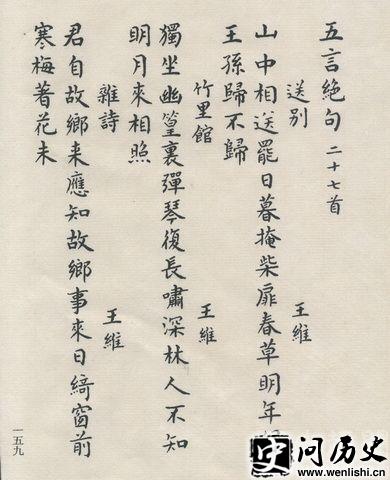 五言絕句 二十七首
送別 王維
山中相送罷日暮掩柴扉春草明年
王孫歸不歸
竹里館 王維
獨坐幽篁裏彈琴復長嘯深林人不知
明月來相照
雜詩 王維
君自故鄉来應知故鄉事來日綺窗前
寒梅著花未
一五九
问历史
www.wenlishi.cn